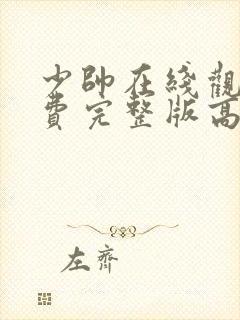 少帥在綫觀
費完整版高
左齊